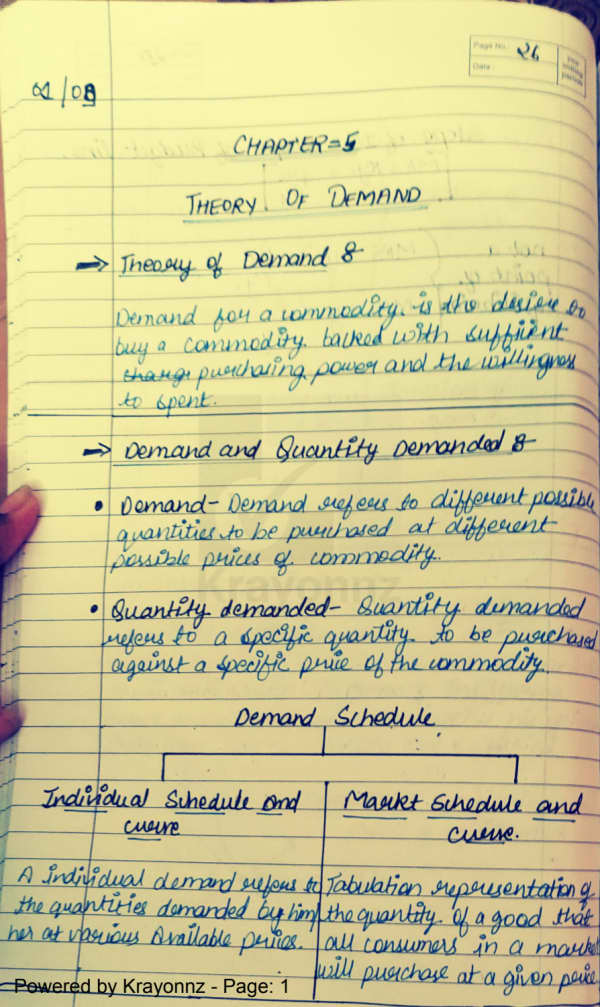 Page No. 26
Date
01/09
CHAPTER=5
THEORY OF DEMAND
→ Theory of Demand :-
Demand for a commodity is the desire to
buy a commodity backed with sufficient
purchasing power and the willingness
to spent.
→ Demand and Quantity Demanded :-
• Demand- Demand refers to different possible
quantities to be purchased at different
possible prices of commodity.
• Quantity demanded- Quantity demanded
refers to a specific quantity to be purchased
against a specific price of the commodity.
Krayonnz
Demand Schedule
Individual Schedule and
curve
A individual demand refers to
the quantities demanded by him
her at various available prices.
Market Schedule and
curve.
Tabulation representation of
the quantity of a good that
all consumers in a market
will purchase at a given price
Powered by Krayonnz - Page: 1